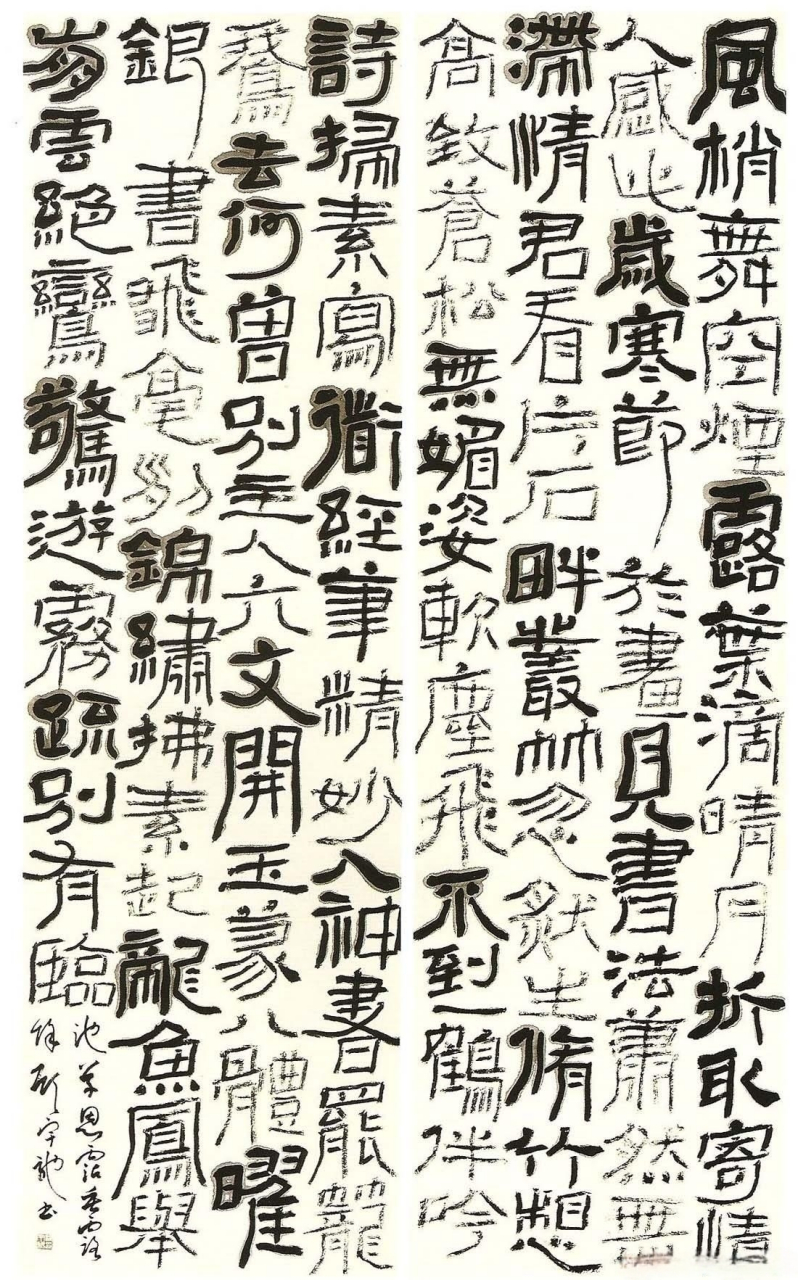 風梢舞空煙露葉滴晴月折取寄情
人感此歲寒節於畫見書法蕭然無
滯情君看片石畔叢林忽然生脩竹想
高致蒼松無媚姿軟塵飛不到一鶴伴吟
詩掃素寫衜經筆精妙入神書罷籠
鵞去何曾別主人六文開玉篆八體曜
銀書飛毫列錦繡拂素起龍魚鳳舉
崩雲絕鸞驚遊霧疏別有臨
池草恩霑垂露
餘 書